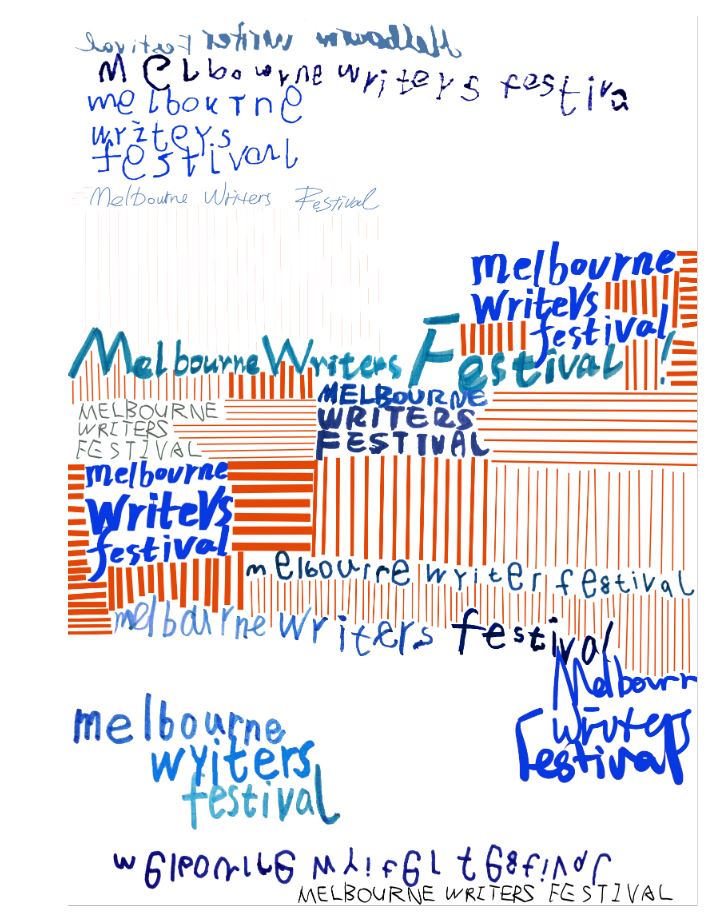 Melbourne Writer Festival
MElbowrne writers festiva
melbourne
writers
festivarl
Melbourne Writers Festival
melbourne
writers
festival
Melbourne Writers Festival!
MELBOURNE
WRITERS
FESTIVAL
MELBOURNE
WRITERS
FESTIVAL
melbourne
writers
festival
melbourne writer festival
melbourne writers festival
Melbourr
writers
Festival
melbourne
writers
festival
MELBOURNE WRITERS FESTIVAL